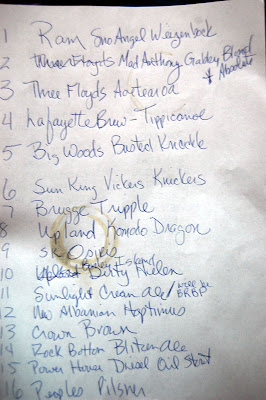 1 Ram Sno Angel Weizenbock
2 Mad Anthony Gabby Blond
& Absolute
3 Three Floyds Aotearoa
4 Lafayette Brew - Tippicanoe
5 Big Woods Busted Knuckle
6 Sun King Vickers Knickers
7 Brugge Tripple
8 Upland Komodo Dragon
9 SK Osiris
10 Barley Island Dirty Helen
11 Sunlight Cream Ale / will be BRBP
12 New Albanian Hoptimus
13 Crown Brown
14 Rock Bottom Blitzen Ale
15 Power House Diesel Oil Stout
16 Peoples Pilsner